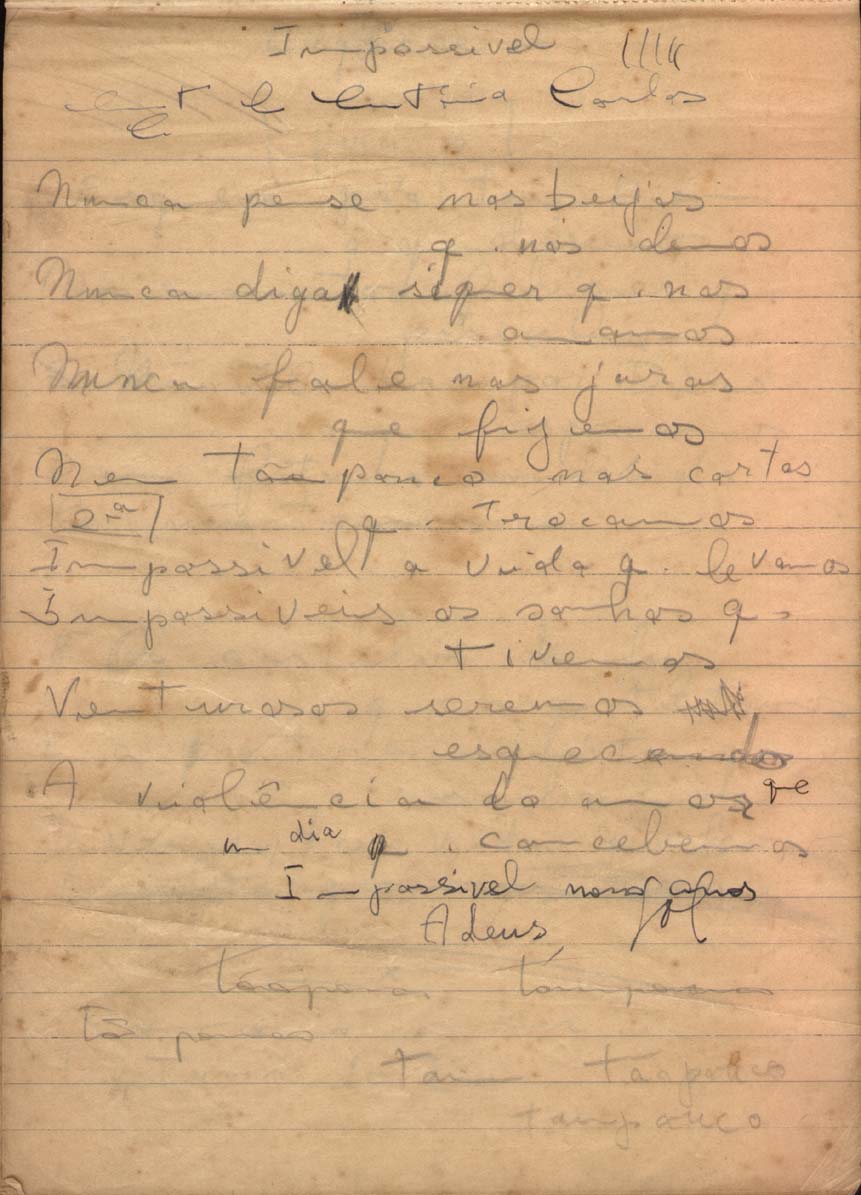 Impossivel
Carlos
Nunca pense nos beijos
q. nós demos
Nunca diga siquer q. nos
amamos
Nunca fale nas juras
que fizemos
Nem tão pouco nas cartas
2ª q. trocamos
Impossivel a vida q. levamos
Impossiveis os sonhos q.
tivemos
Venturosos seremos
esquecendo
A violência do amor que
um dia concebemos
Impossivel
Adeus
Tão pouco
tam taopouco
tampouco